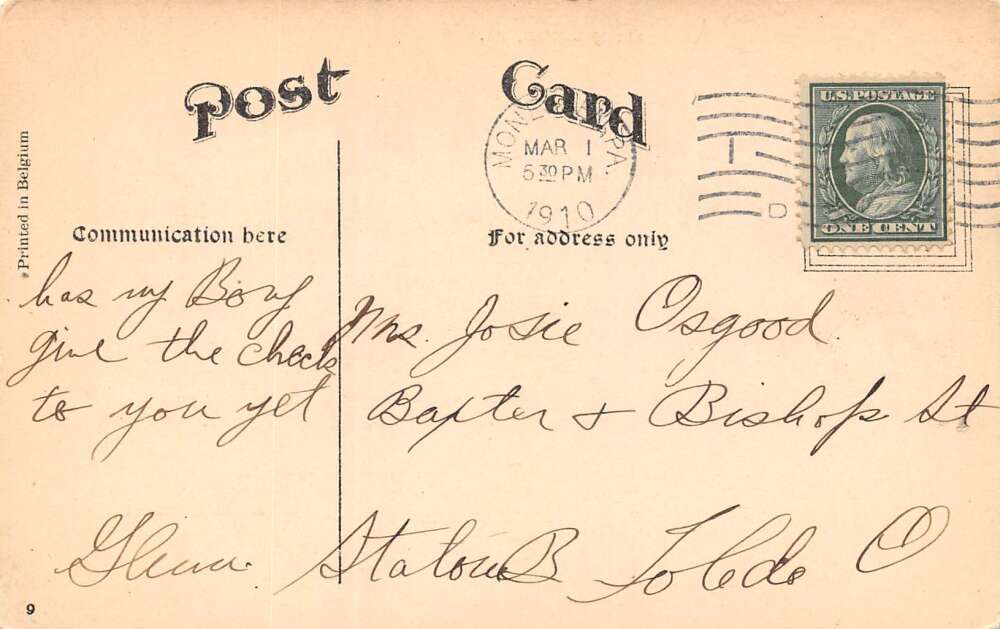 Post Card
MAR 1
5 30 PM
1910
PA.
U.S. POSTAGE
ONE CENT
D
Printed in Belgium
Communication here
For address only
has my Boy
give the check
to you yet
Glenn.
Mrs. Josie Osgood.
Baxter + Bishop St
Station B Toledo O
9